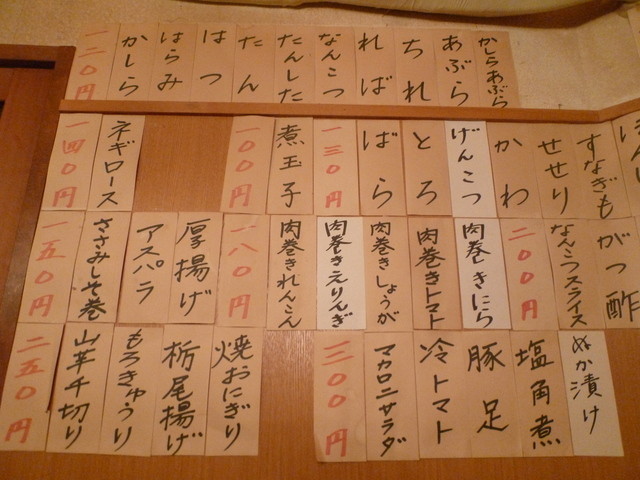 かしらあぶら
あぶら
ちれ
れば
なんこつ
たんした
たん
はつ
はらみ
かしら
一二〇円
すなぎも
せせり
かわ
げんこつ
とろ
ばら
一三〇円
煮玉子
一〇〇円
ネギロース
一四〇円
がつ酢
なんこつスライス
二〇〇円
肉巻きにら
肉巻きトマト
肉巻きしょうが
肉巻きえりんぎ
肉巻きれんこん
一八〇円
厚揚げ
アスパラ
ささみしそ巻
一五〇円
ぬか漬け
塩角煮
豚足
冷トマト
マカロニサラダ
三〇〇円
焼おにぎり
栃尾揚げ
もろきゅうり
山芋千切り
二五〇円